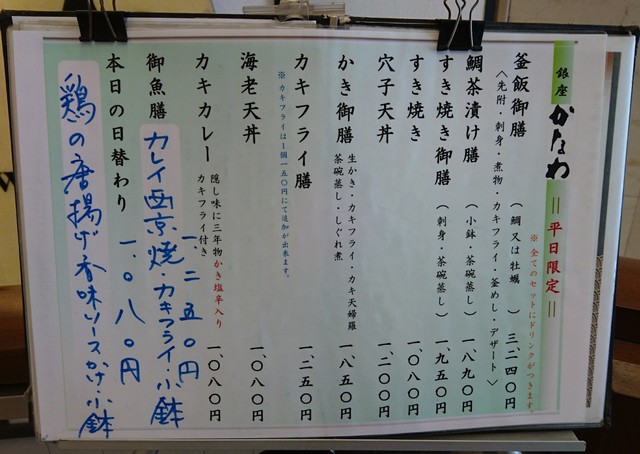 銀座 かなわ
＝平日限定＝
※全てのセットにドリンクがつきます。
釜飯御膳 （鯛又は牡蠣 ） 三二四〇円
〈先附・刺身・煮物・カキフライ・釜めし・デザート〉
鯛茶漬け膳 （小鉢・茶碗蒸し） 一、八九〇円
すき焼き御膳 （刺身・茶碗蒸し） 一、九五〇円
すき焼き 一、〇八〇円
穴子天丼 一、二〇〇円
かき御膳 生かき・カキフライ・カキ天婦羅 一、八五〇円
茶碗蒸し・しぐれ煮
カキフライ膳 一、二五〇円
※カキフライは１個一五〇円にて追加が出来ます。
海老天丼 一、〇八〇円
カキカレー 隠し味に三年物かき塩辛入り 一、〇八〇円
カキフライ付き
御魚膳 一、二五〇円
カレイ西京焼・カキフライ・小鉢
本日の日替わり 一、〇八〇円
鶏の唐揚げ香味ソースかけ・小鉢